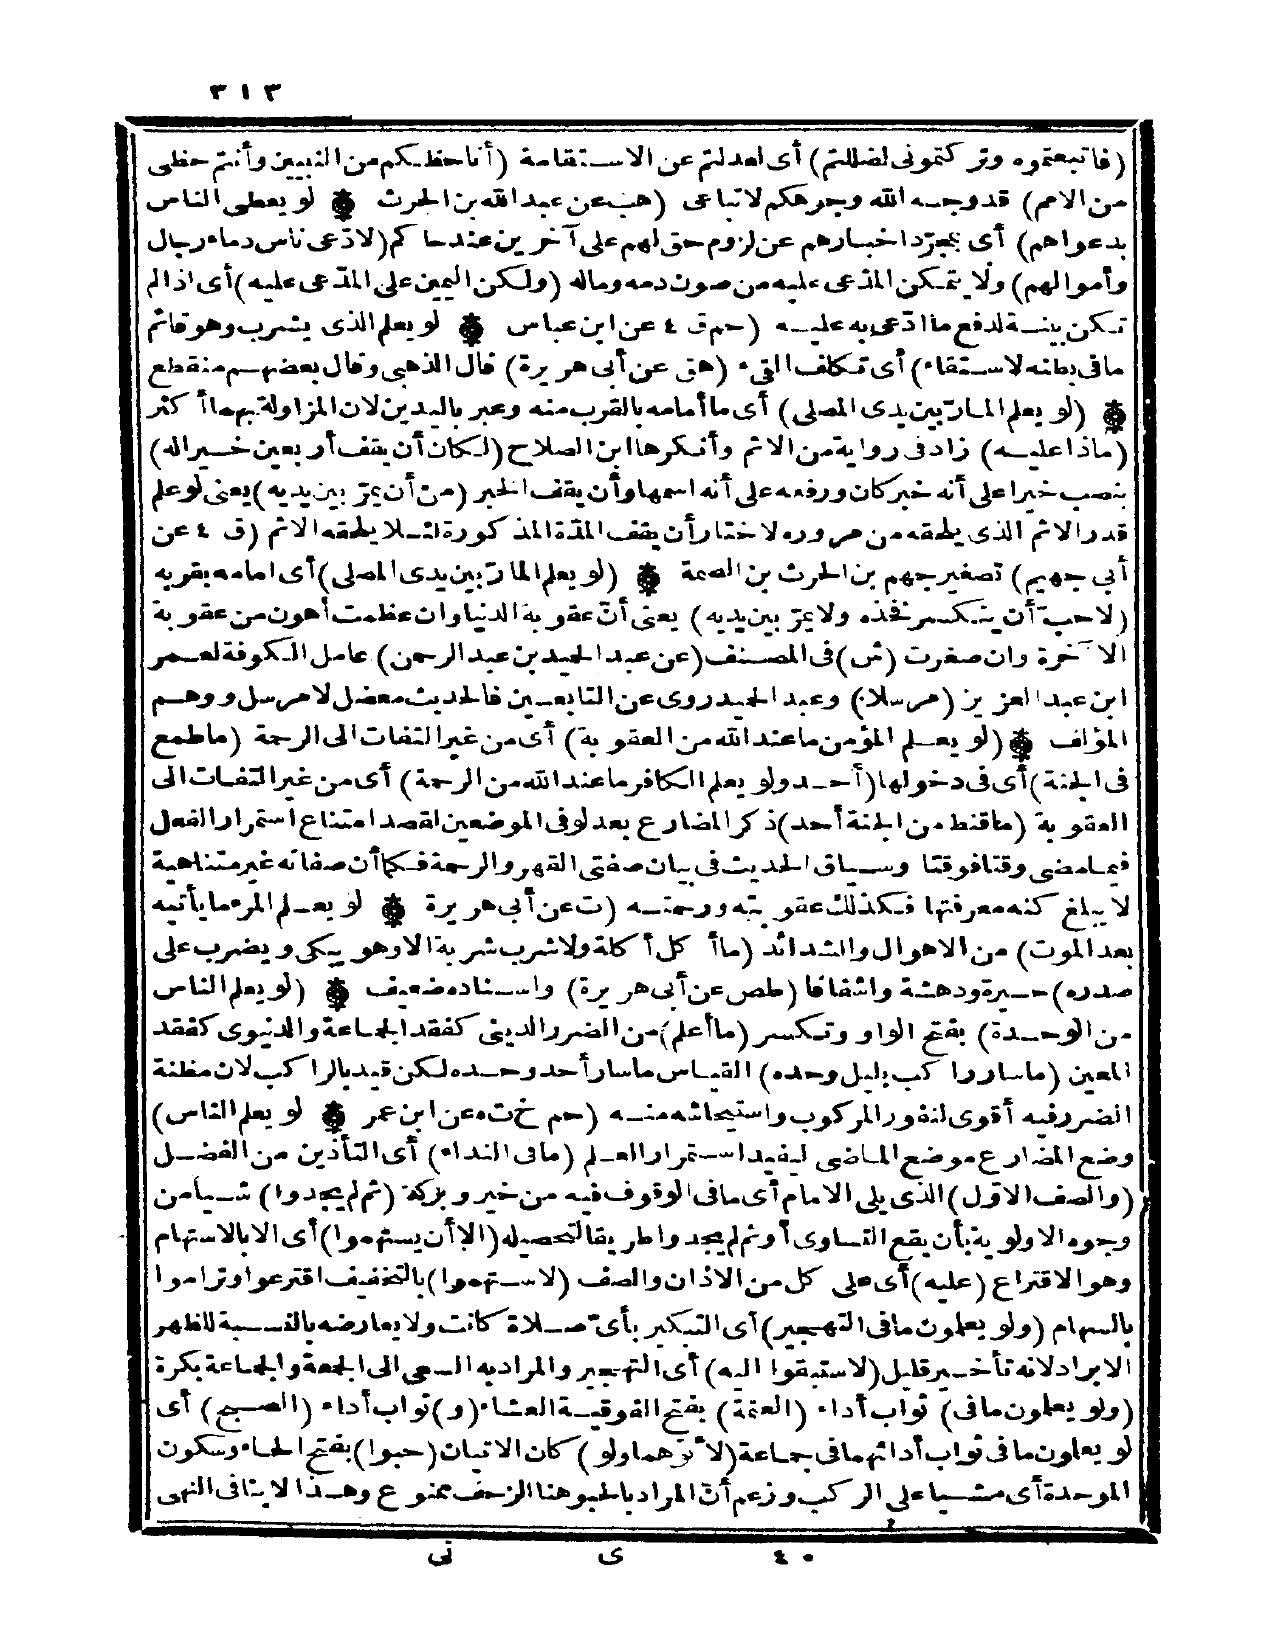 ٣١٣
(فاتبعتموه وتركتموني لضللتم) أى لعدلتم عن الاستقامة (أنا حظكم من النبيين وأنتم حظى
من الامم) قد وجه الله وجوهكم لاتباعى (هب عن عبد الله بن الحرث لو يعطى الناس
بدعواهم) أى بمجرّد اخبارهم عن لزوم حق لهم على آخرين عند حاكم (لادّعى ناس دماء رجال
وأموالهم) ولا يتمكن المدّعى عليه من صون دمه وماله (ولكن اليمين على المدّعى عليه) أى اذا لم
تكن بينة لدفع ما ادّعى به عليه (حم ق ٤ عن ابن عباس لو يعلم الذى يشرب وهو قائم
ما فى بطنه لاستقاء) أى تكلف القىء (هق عن أبى هريرة) قال الذهبى وقال بعضهم منقطع
(لو يعلم المارّ بين يدى المصلى) أى ما أمامه بالقرب منه وعبر باليدين لان المزاولة بهما أكثر
(ماذا عليه) زاد فى رواية من الاثم وأنكرها ابن الصلاح (لكان أن يقف أربعين خير اله)
بنصب خيرا على أنه خبر كان ورفعه على أنه اسمها وأن يقف الخبر (من أن يمرّ بين يديه) يعنى لو علم
قدر الاثم الذى يلحقه من مروره لاختار أن يقف المدّة المذكورة لئلا يلحقه الاثم (ق ٤ عن
أبى جهيم) تصغير جهم بن الحرث بن الصمة (لو يعلم المارّ بين يدى المصلى) أى امامه بقربه
(لاحبّ أن ينكسر فخذه ولا يمرّ بين يديه) يعنى أنّ عقوبة الدنيا وان عظمت أهون من عقوبة
الآخرة وان صغرت (ش) فى المصنف (عن عبد الحميد بن عبد الرحمن) عامل الكوفة لعمر
ابن عبد العزيز (مرسلا) وعبد الحميد روى عن التابعين فالحديث معضل لا مرسل ووهم
المؤلف (لو يعلم المؤمن ما عند الله من العقوبة) أى من غير التفات الى الرحمة (ما طمع
فى الجنة) أى فى دخولها (أحد ولو يعلم الكافر ما عند الله من الرحمة) أى من غير التفات الى
العقوبة (ما قنط من الجنة أحد) ذكر المضارع بعد لو فى الموضعين لقصد امتناع استمرار الفعل
فيما مضى وقتا فوقتا وسياق الحديث فى بيان صفتى القهر والرحمة فكما أن صفاته غير متناهية
لا يبلغ كنه معرفتها فكذلك عقوبته ورحمته (ت عن أبى هريرة لو يعلم المرء ما يأتيه
بعد الموت) من الاهوال والشدائد (ما أكل أكلة ولا شرب شربة الا وهو يبكى ويضرب على
صدره) حيرة ودهشة واشفاقا (طص عن أبى هريرة) واسناده ضعيف (لو يعلم الناس
من الوحدة) بفتح الواو وتكسر (ما أعلم) من الضرر الدينى كفقد الجماعة والدنيوى كفقد
المعين (ما سار راكب بليل وحده) القياس ما سار أحد وحده لكن قيد بالراكب لان مظنة
الضرر فيه أقوى لنفور المركوب واستيحاشه منه (حم خ ت ه عن ابن عمر لو يعلم الناس)
وضع المضارع موضع الماضى ليفيد استمرار العلم (ما فى النداء) أى التأذين من الفضل
(والصف الاول) الذى يلى الامام أى ما فى الوقوف فيه من خير وبركة (ثم لم يجدوا) شيأ من
وجوه الاولوية بأن يقع التساوى أو ثم لم يجدوا طريقا لتحصيله (الا أن يستهموا) أى الا بالاستهام
وهو الاقتراع (عليه) أى على كل من الاذان والصف (لاستهموا) بالتخفيف اقترعوا وتراموا
بالسهام (ولو يعلمون ما فى التهجير) أى التبكير بأىّ صلاة كانت ولا يعارضه بالنسبة للظهر
الابراد لانه تأخير قليل (لاستبقوا اليه) أى التهجير والمراد به السعى الى الجمعة والجماعة بكرة
(ولو يعلمون ما فى) ثواب أداء (العتمة) بفتح الفوقية العشاء (و) ثواب أداء (الصبح) أى
لو يعلمون ما فى ثواب أدائهما فى جماعة (لأتوهما ولو) كان الاتيان (حبوا) بفتح الحاء وسكون
الموحدة أى مشيا على الركب وزعم أنّ المراد بالحبو هنا الزحف ممنوع وهذا لا ينافى النهى
٤٠ ى نى